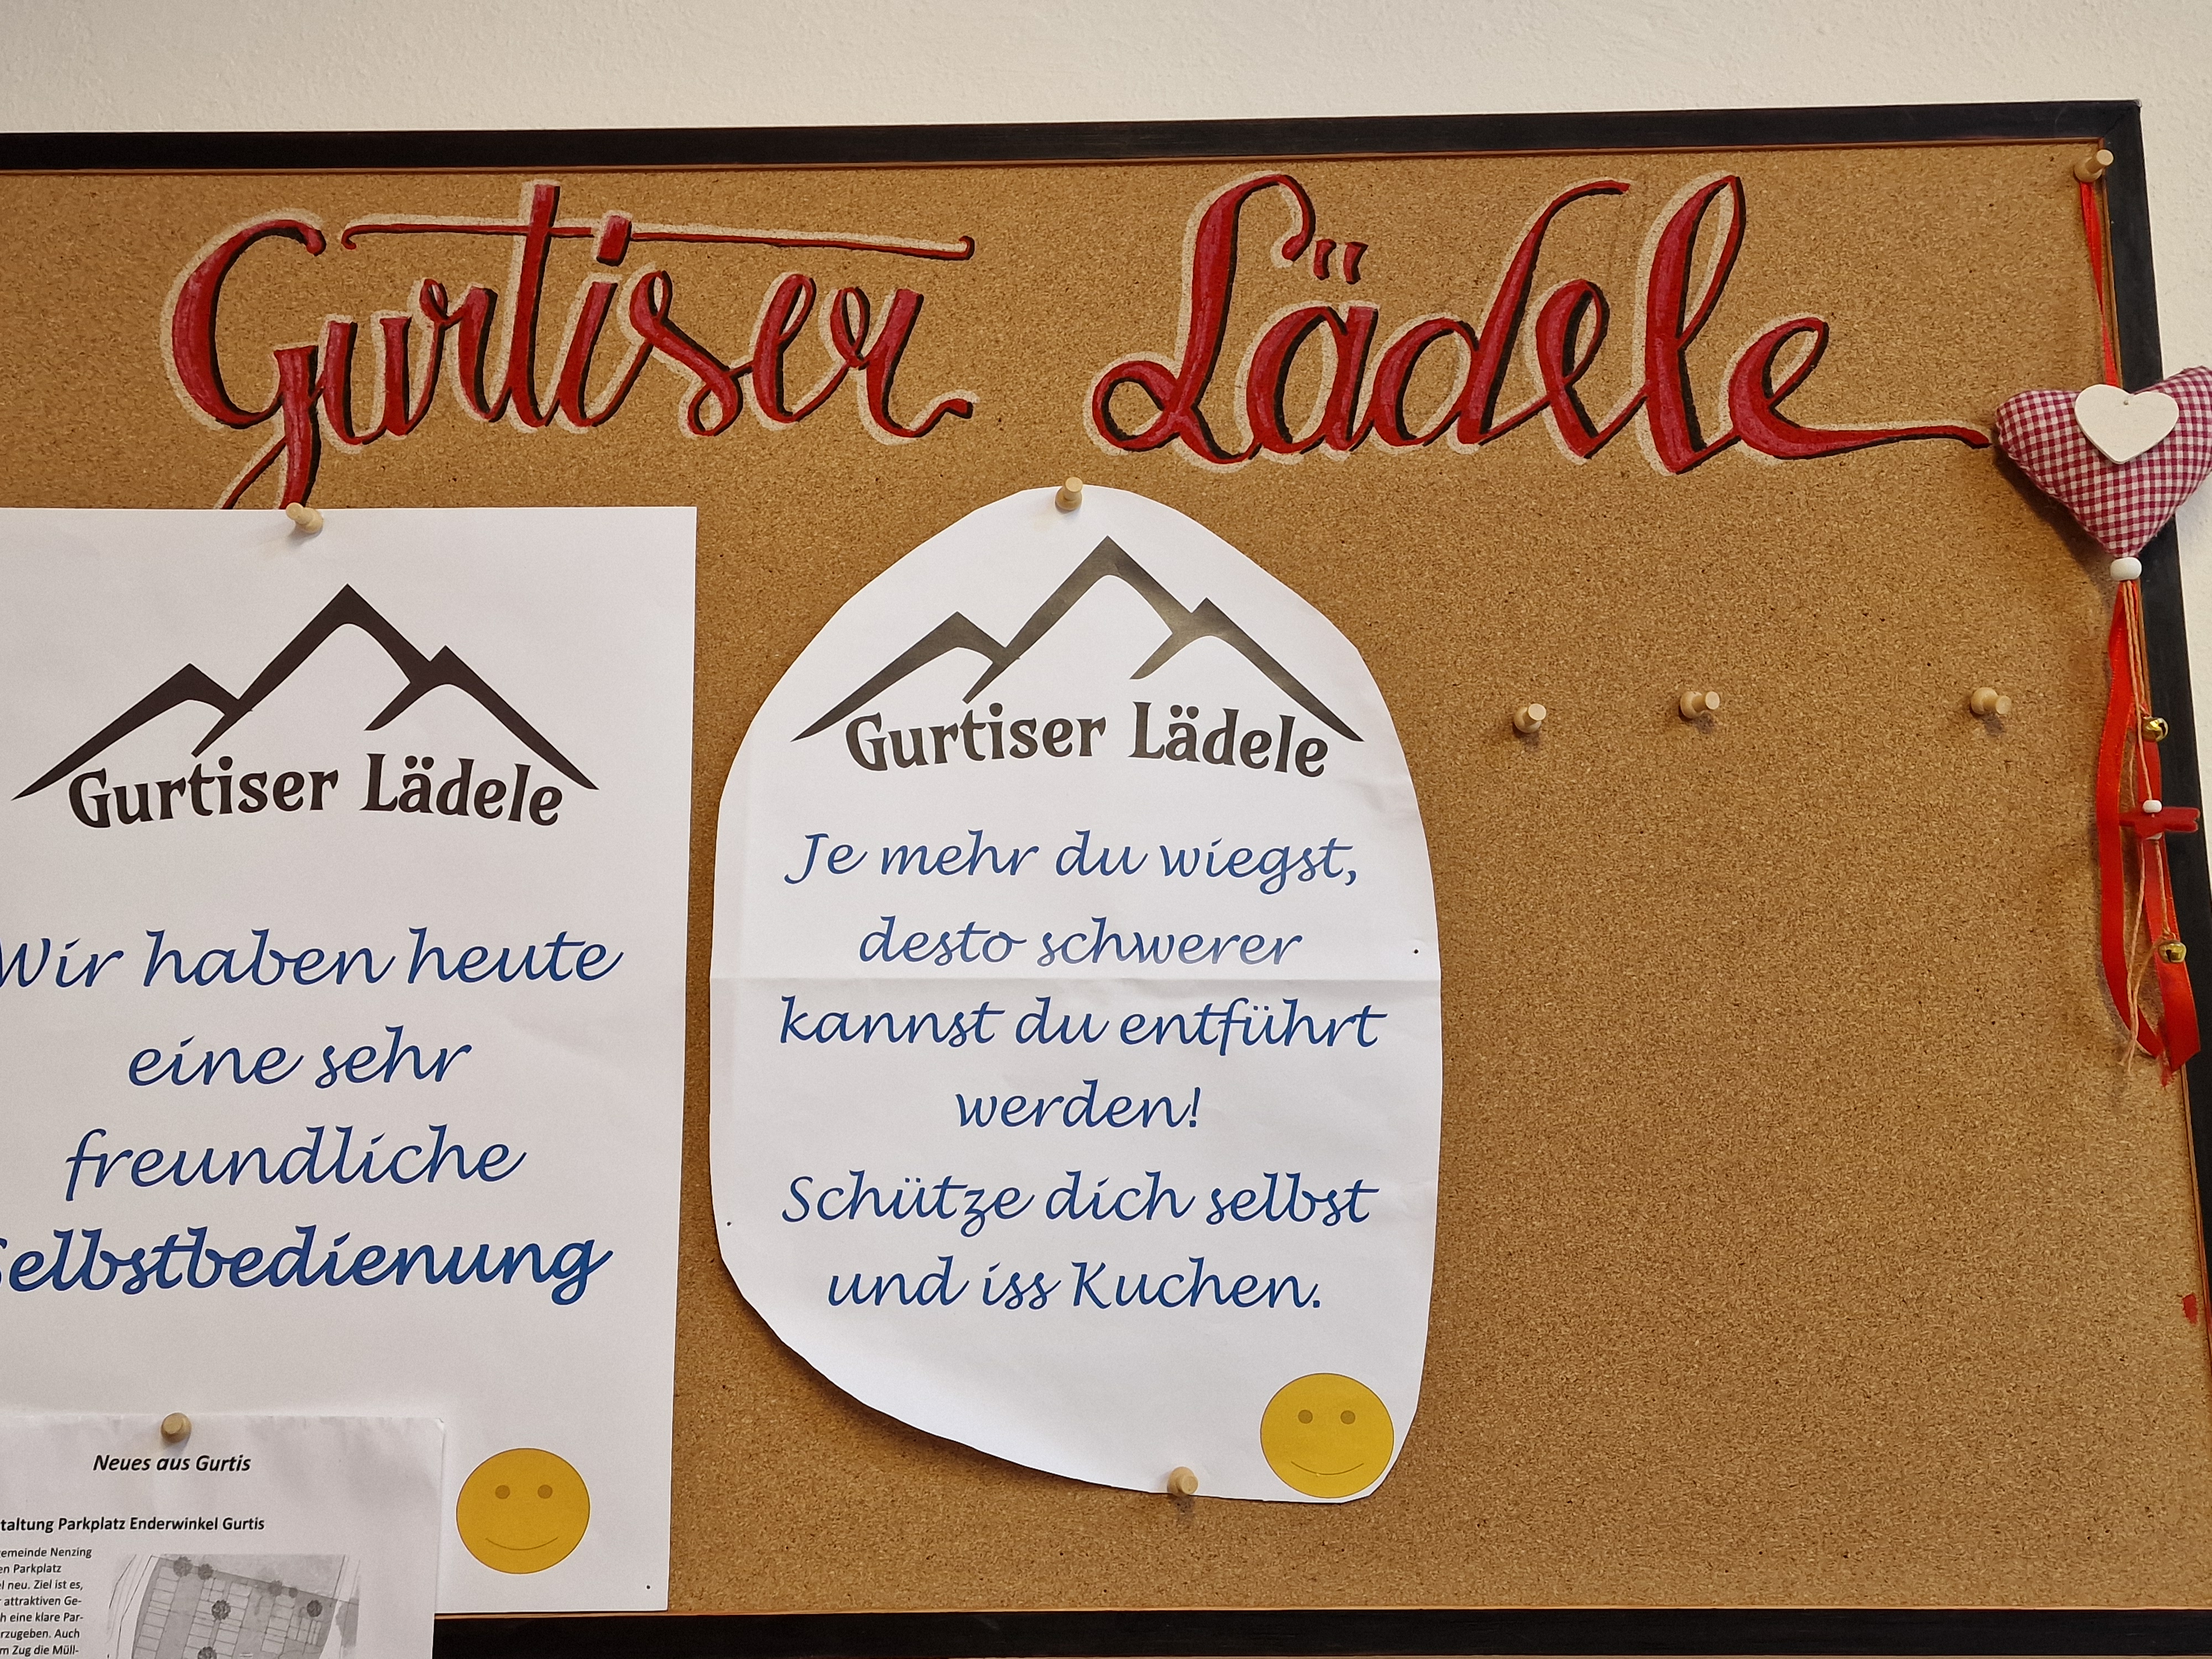 Gurtiser Lädele
Gurtiser Lädele
Wir haben heute
eine sehr
freundliche
Selbstbedienung
Gurtiser Lädele
Je mehr du wiegst,
desto schwerer
kannst du entführt
werden!
Schütze dich selbst
und iss Kuchen.
Neues aus Gurtis
taltung Parkplatz Enderwinkel Gurtis
emeinde Nenzing
en Parkplatz
l neu. Ziel ist es,
r attraktiven Ge-
h eine klare Par-
rzugeben. Auch
m Zug die Müll-